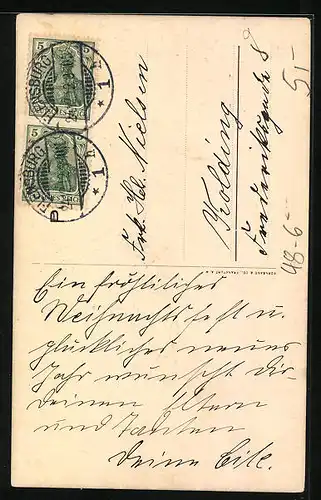 5
FLENSBURG
* 1
5
FLENSBURG
* 1
Frk. Nielsen
Kolding
Frederiksgade 8
51-
48-6-
Ein fröhliches
Weihnachtsfest u.
glückliches neues
Jahr wünscht dir
deinen Eltern
und Tanten
deine